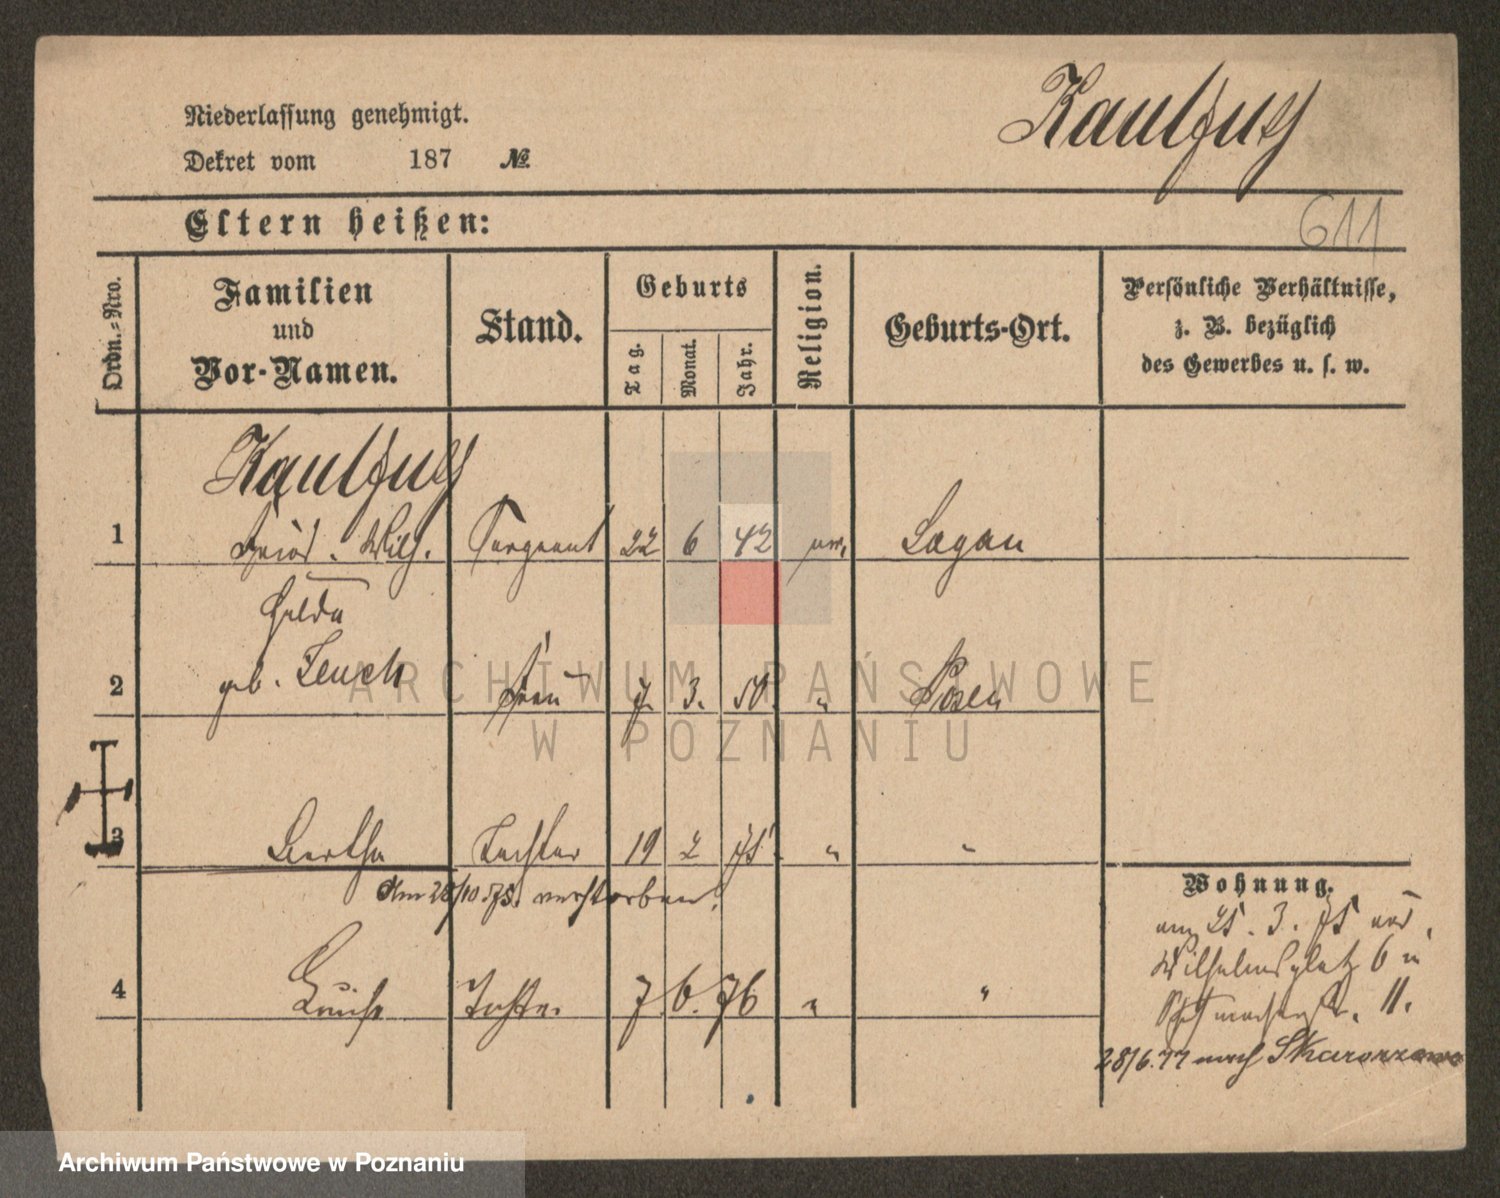 Kaulfuß
Niederlassung genehmigt.
Dekret vom 187 №.
Eltern heißen:
611
Ordn.-Nro.
Familien
und
Vor-Namen.
Stand.
Geburts
Tag.
Monat.
Jahr.
Religion.
Geburts-Ort.
Persönliche Verhältnisse,
z. B. bezüglich
des Gewerbes u. s. w.
Kaulfuß
1 Fried. Wilh. Sergeant 22 6 42 ev. Sagan
Hulda
2 geb. Teusch Frau 7. 3. 50. " Posen
3 Bertha Tochter 19 2 75. " "
Am 28/10.75. verstorben.
4 Louise Tochter 7. 6. 76 " "
Wohnung.
25. 3. 75
Wilhelmsplatz 6 u
11.
28/6.77 nach Skarorzewo
ARCHIWUM PAŃSTWOWE
W POZNANIU
Archiwum Państwowe w Poznaniu